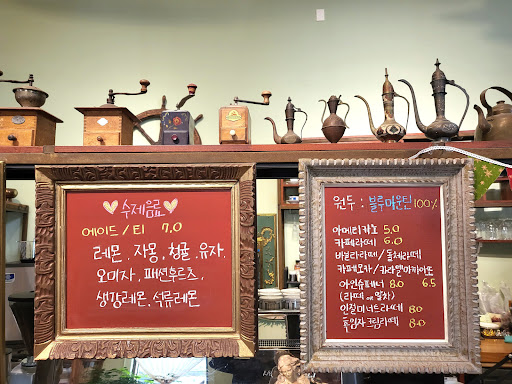 수제음료
에이드/티 7,0
레몬, 자몽, 청귤, 유자,
오미자, 패션후르츠,
생강레몬, 석류레몬
원두 : 블루마운틴 100%
아메리카노 5.0
카페라떼 6.0
바닐라라떼/돌체라떼
카페모카/카라멜마끼아또 6.5
아인슈페너 8.0
(라떼 or 말차)
인절미너트라떼 8.0
흑임자크림라떼 8.0